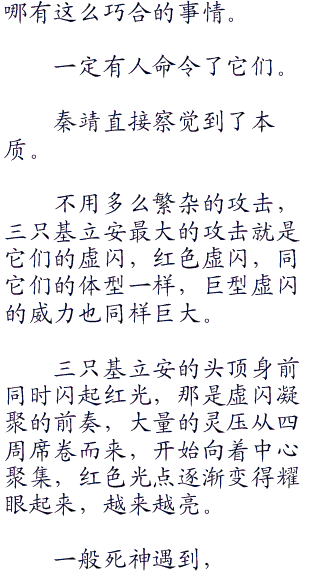 哪有这么巧合的事情。
一定有人命令了它们。
秦靖直接察觉到了本
质。
不用多么繁杂的攻击，
三只基立安最大的攻击就是
它们的虚闪，红色虚闪，同
它们的体型一样，巨型虚闪
的威力也同样巨大。
三只基立安的头顶身前
同时闪起红光，那是虚闪凝
聚的前奏，大量的灵压从四
周席卷而来，开始向着中心
聚集，红色光点逐渐变得耀
眼起来，越来越亮。
一般死神遇到，